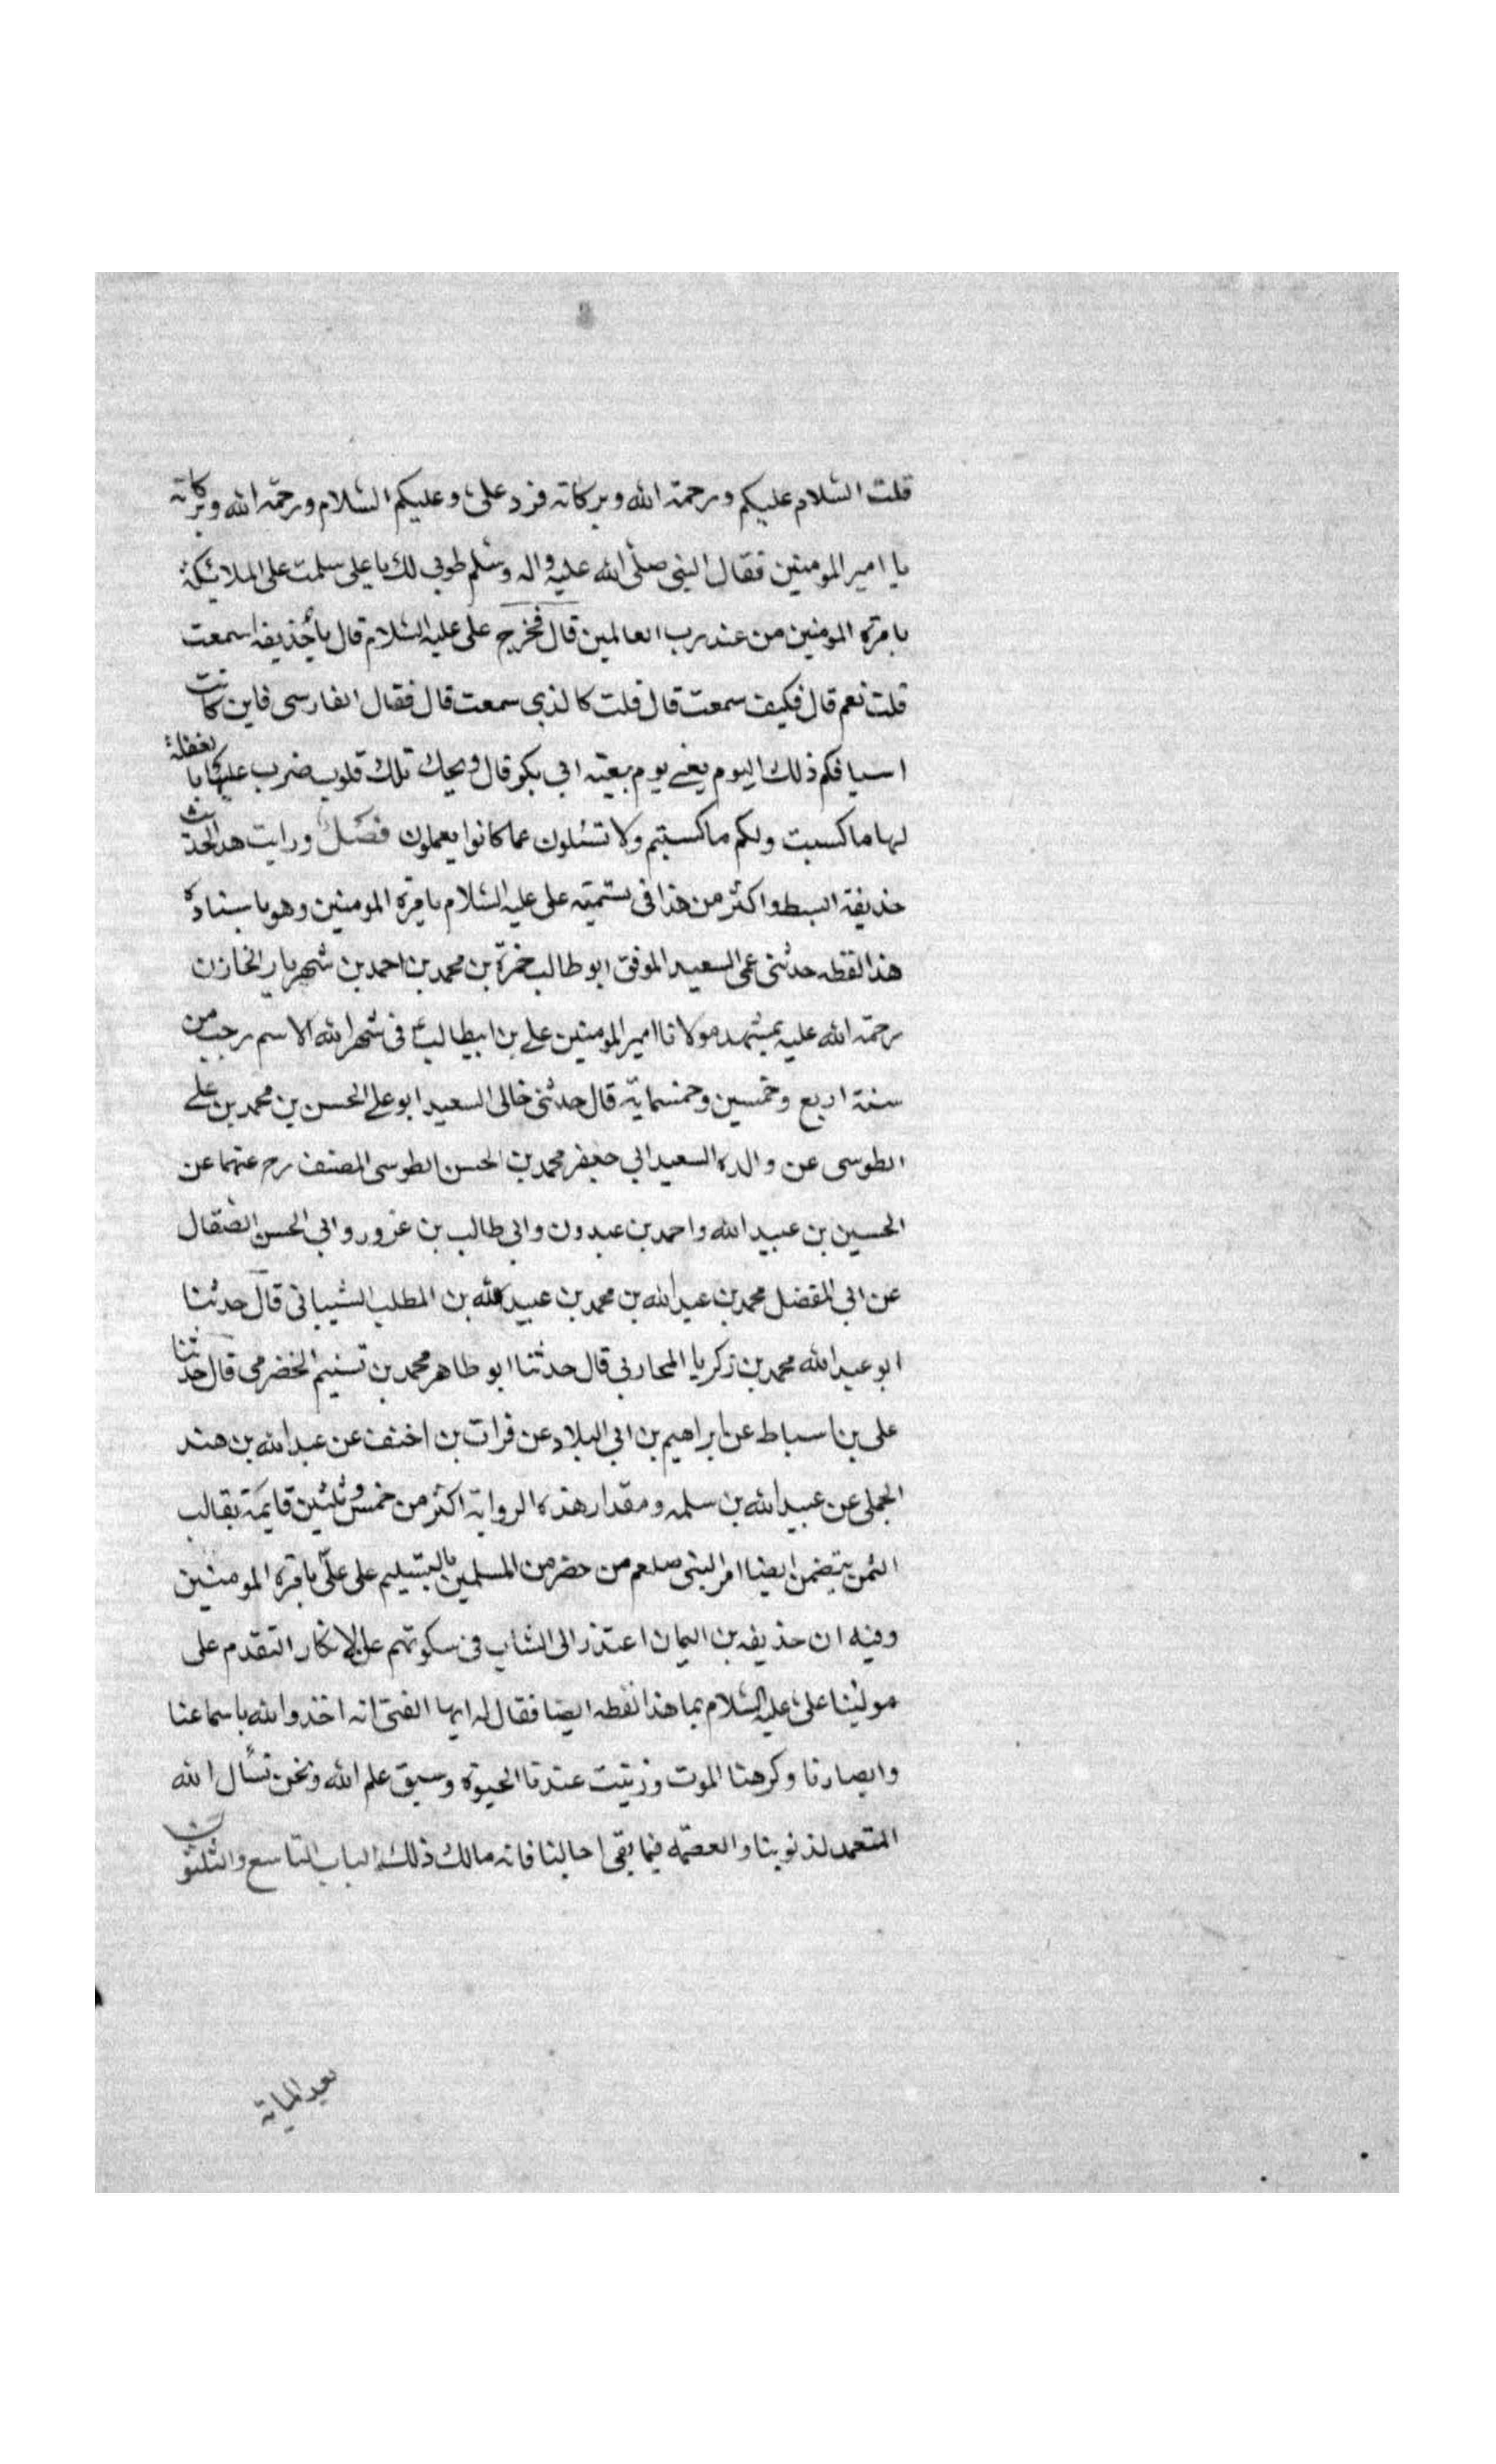 قلت السلام عليكم ورحمة الله وبركاته فرد علىّ وعليكم السلام ورحمة الله وبركاته
يا امير المومنين فقال النبى صلى الله عليه واله وسلم طوبى لك يا على سلمت على الملائيكة
بامرة المومنين من عند رب العالمين قال فخرج على عليه السلام قال يا حذيفه اسمعت
قلت نعم قال فكيف سمعت قال قلت كالذى سمعت قال فقال الفارسى فاين كانت
اسيافكم ذلك اليوم يعنے يوم بيعته ابى بكر قال ويحك تلك قلوب ضرب عليها بالغفلة
لها ما كسبت ولكم ما كسبتم ولا تسئلون عما كانوا يعملون فصل ورايت هذا الحديث
حذيفة ابسط واكثر من هذا فى تسميته على عليه السلام بامرة المومنين وهو باسناده
هذا لفظه حدثنى عمى السعيد الموفق ابو طالب حمزة بن محمد بن احمد بن شهريار الخازن
رحمة الله عليه بمشهد مولانا امير المومنين على بن ابيطالب ع فى شهر الله الاسم رجب من
سنة اربع وخمسين وخمسمايه قال حدثنى خالى السعيد ابو على الحسن بن محمد بن على
الطوسى عن والده السعيد ابى جعفر محمد بن الحسن الطوسى المصنف رح عنهما عن
الحسين بن عبيد الله واحمد بن عبدون وابى طالب بن غرور وابى الحسن الضقال
عن ابى المفضل محمد بن عبد الله بن محمد بن عبيد الله بن المطلب الشيبانى قال حدثنا
ابو عبد الله محمد بن زكريا المحاربى قال حدثنا ابو طاهر محمد بن تسنيم الحضرمى قال حدثنا
على بن اسباط عن ابراهيم بن ابى البلاد عن فرات بن اخنف عن عبد الله بن هند
الجملى عن عبيد الله بن سلمه ومقدار هذه الروايه اكثر من خمس وثلثين قايمة بقالب
الثمن يتضمن ايضا امر النبى صلعم من حضر من المسلمين بالتسليم على علّى بامرة المومنين
وفيه ان حذيفه بن اليمان اعتذر الى الشاب فى سكوتهم على الانكار التقدم على
مولينا على عليه السلام بما هذا لفظه ايضا فقال له ايها الفتى انه اخذ والله باسماعنا
وابصارنا وكرهنا الموت وزينت عندنا الحيوة وسبق علم الله ونحن نسأل الله
التغمد لذنوبنا والعصمه فيما بقى اجالنا فانه مالك ذلك الباب التاسع والثلثون
بعد المايه